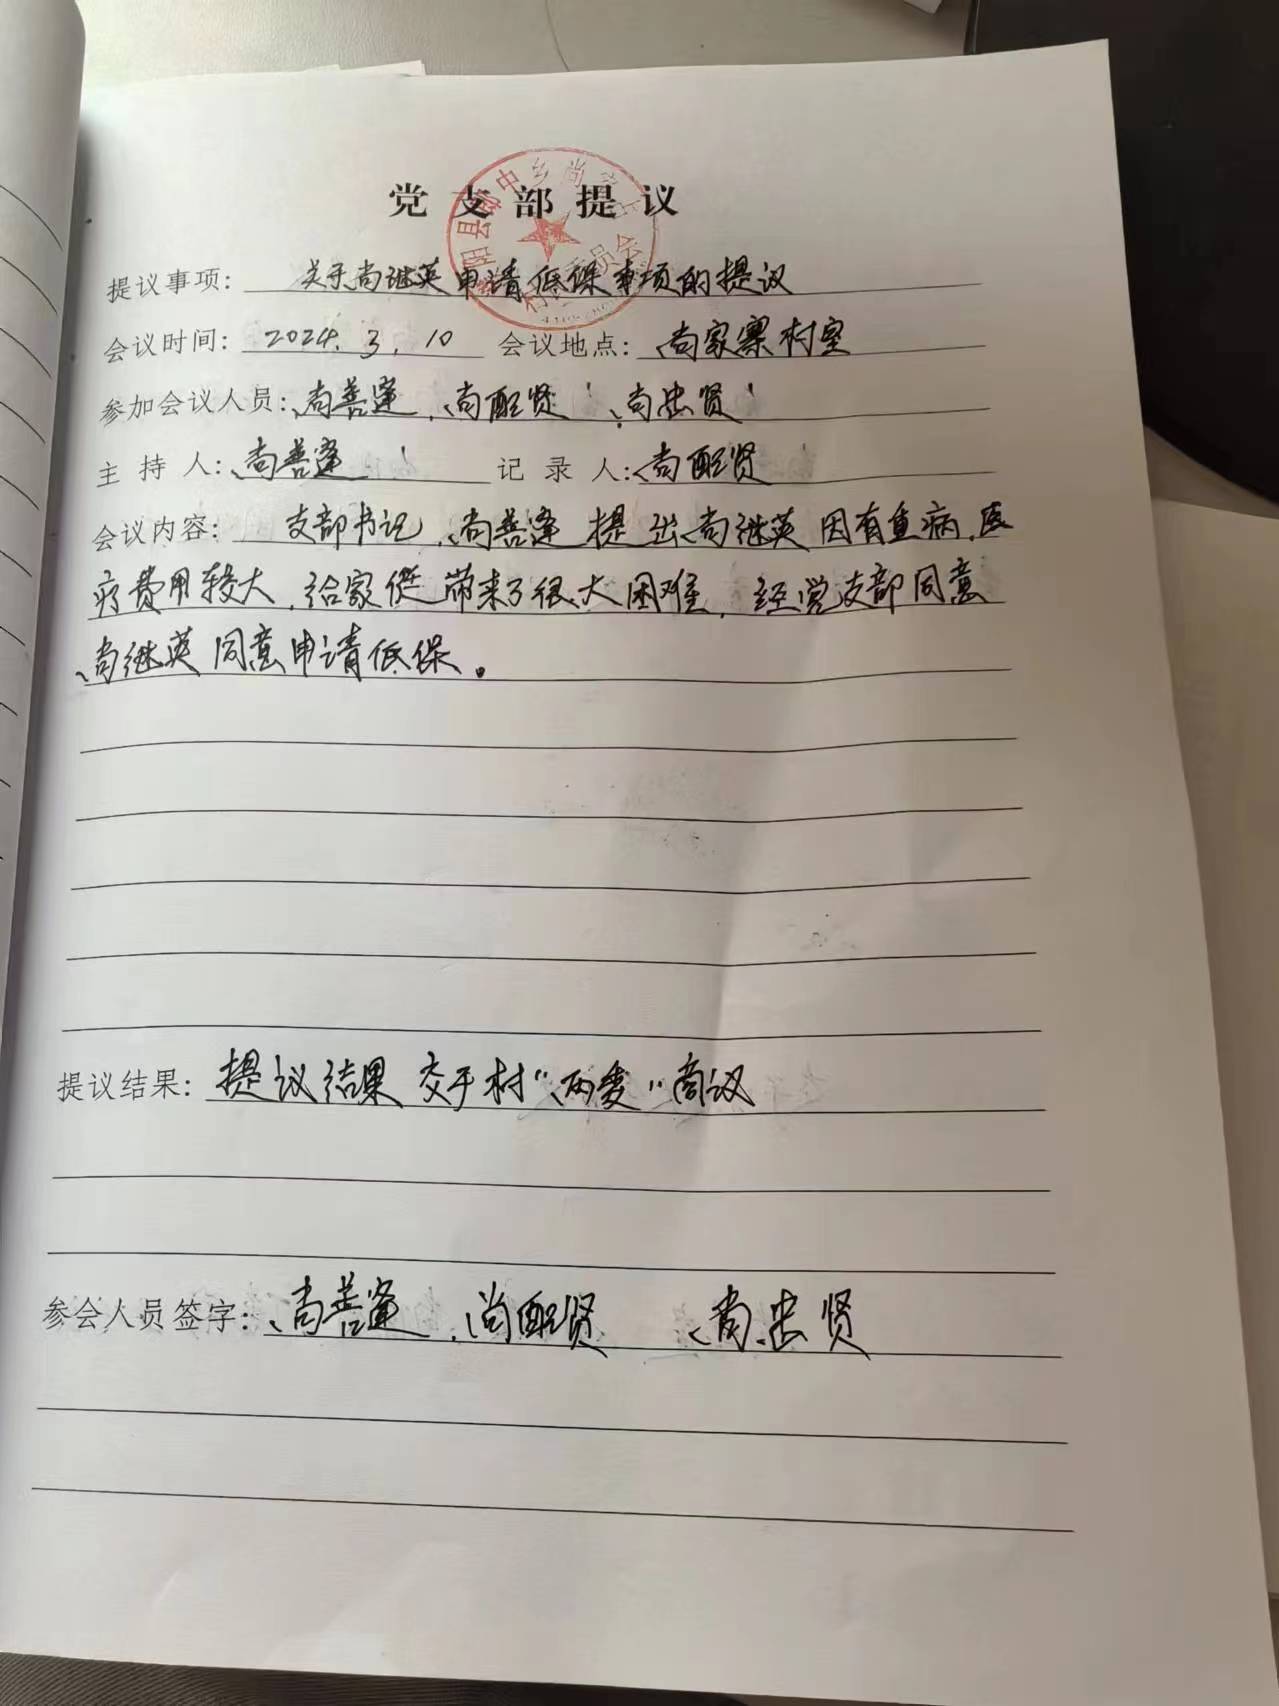 党支部提议
提议事项: 关于尚继英申请低保事项的提议
会议时间: 2024.3.10 会议地点: 尚家寨村室
参加会议人员: 尚善逢、尚配贤、尚忠贤
主持人: 尚善逢 记录人: 尚配贤
会议内容: 支部书记,尚善逢提出尚继英因有重病,医
疗费用较大,给家庭带来了很大困难,经党支部同意
尚继英同意申请低保。
提议结果: 提议结果交于村“两委”商议
参会人员签字: 尚善逢、尚配贤 尚忠贤